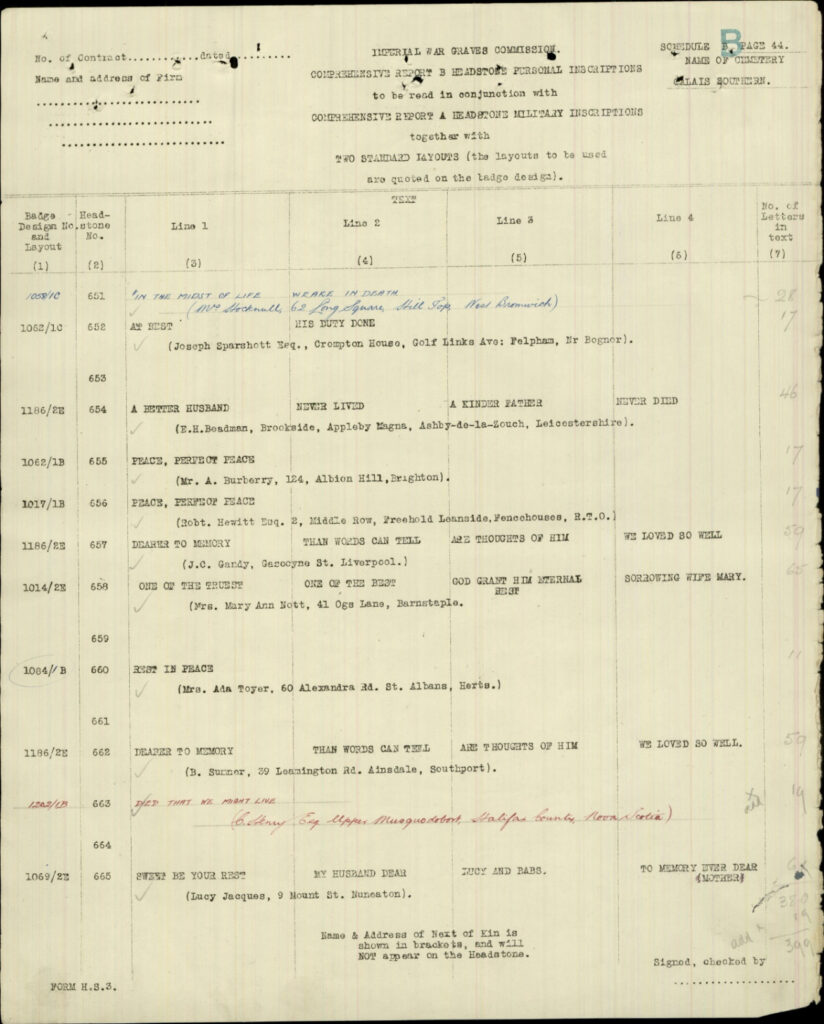 No. of Contract............dated........
Name and address of Firm
IMPERIAL WAR GRAVES COMMISSION.
COMPREHENSIVE REPORT B HEADSTONE PERSONAL INSCRIPTIONS
to be read in conjunction with
COMPREHENSIVE REPORT A HEADSTONE MILITARY INSCRIPTIONS
together with
TWO STANDARD LAYOUTS (the layouts to be used
are quoted on the badge design).
B
SCHEDULE B PAGE 44.
NAME OF CEMETERY
CALAIS SOUTHERN.
TEXT
Badge Design No. and Layout (1)
Head-stone No. (2)
Line 1 (3)
Line 2 (4)
Line 3 (5)
Line 4 (6)
No. of Letters in text (7)
1058/1C 651 "IN THE MIDST OF LIFE WE ARE IN DEATH 28
(Mrs Stocknull, 62 Long Square, Hill Top, West Bromwich)
1062/1C 652 AT REST HIS DUTY DONE 17
(Joseph Sparshott Esq., Crompton House, Golf Links Ave: Felpham, Nr Bognor).
653
1186/2E 654 A BETTER HUSBAND NEVER LIVED A KINDER FATHER NEVER DIED 46
(E.H.Beadman, Brookside, Appleby Magna, Ashby-de-la-Zouch, Leicestershire).
1062/1B 655 PEACE, PERFECT PEACE 17
(Mr. A. Burberry, 124, Albion Hill,Brighton).
1017/1B 656 PEACE, PERFECT PEACE 17
(Robt. Hewitt Esq. 2, Middle Row, Freehold Leanside,Fencehouses, R.T.O.)
1186/2E 657 DEARER TO MEMORY THAN WORDS CAN TELL ARE THOUGHTS OF HIM WE LOVED SO WELL 59
(J.C. Gandy, Gascoyne St. Liverpool.)
1014/2E 658 ONE OF THE TRUEST ONE OF THE BEST GOD GRANT HIM ETERNAL REST SORROWING WIFE MARY. 65
(Mrs. Mary Ann Nott, 41 Ogs Lane, Barnstaple.
659
1084/1B 660 REST IN PEACE 11
(Mrs. Ada Toyer, 60 Alexandra Rd. St. Albans, Herts.)
661
1186/2E 662 DEARER TO MEMORY THAN WORDS CAN TELL ARE THOUGHTS OF HIM WE LOVED SO WELL. 59
(B. Sumner, 39 Leamington Rd. Ainsdale, Southport).
1202/1B 663 DIED THAT WE MIGHT LIVE add 19
(C. Henry Esq Upper Musquodoboit, Halifax County, Nova Scotia)
664
1069/2E 665 SWEET BE YOUR REST MY HUSBAND DEAR LUCY AND BABS. TO MEMORY EVER DEAR (MOTHER)
(Lucy Jacques, 9 Mount St. Nuneaton).
380
add 19
399
Name & Address of Next of Kin is
shown in brackets, and will
NOT appear on the Headstone.
Signed, checked by
FORM H.S.3.